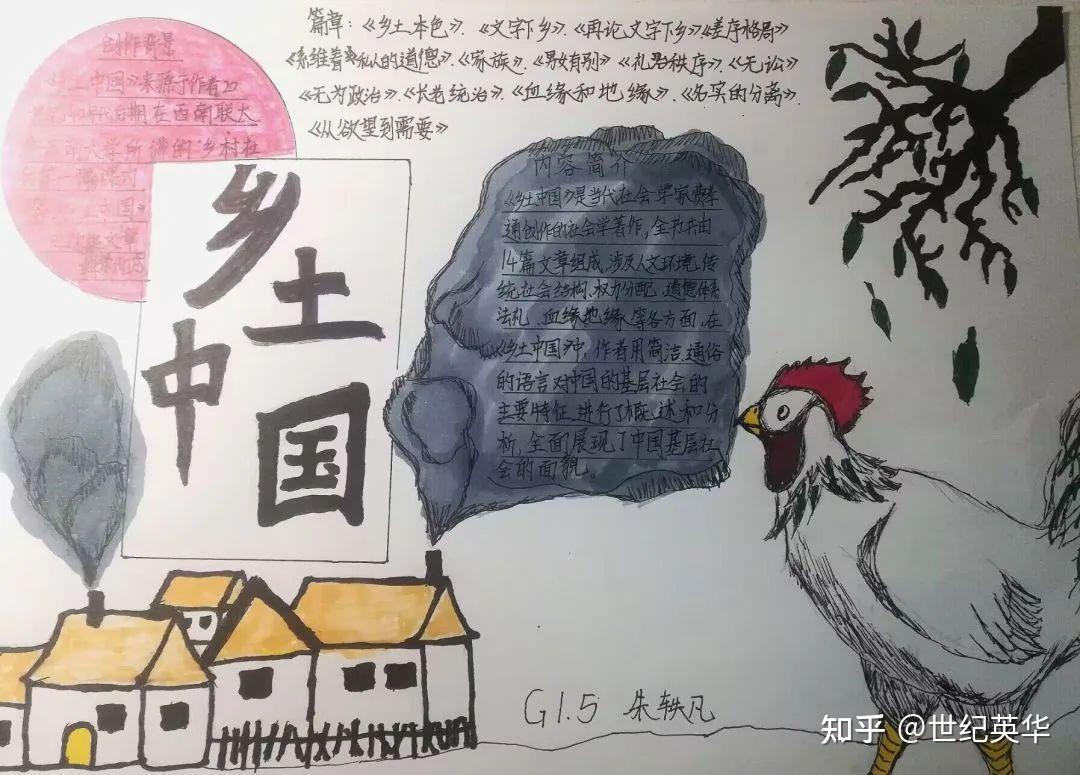 篇章:《乡土本色》.《文字下乡》.《再论文字下乡》《差序格局》
《系维着私人的道德》.《家族》.《男女有别》《礼治秩序》.《无讼》
《无为政治》.《长老统治》.《血缘和地缘》.《名实的分离》.
《从欲望到需要》
创作背景
土中国》来源于作者20
期在西南联大
大学所讲的"乡村社
乡土中国
内容简介
《乡土中国》是当代社会学家费孝
通创作的社会学著作,全书共由
14篇文章组成,涉及人文环境、传
统社会结构、权力分配、道德体系
法礼、血缘地缘等各方面,在
《乡土中国》中,作者用简洁、通俗
的语言对中国的基层社会的
主要特征进行了概述和分
析,全面展现了中国基层社
会的面貌.
G1.5 朱轶凡
知乎 @世纪英华